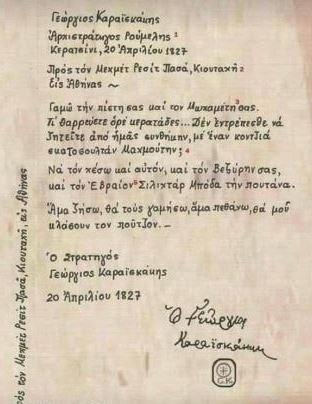 Γεώργιος Καραϊσκάκης
Ἀρχιστράτηγος Ρούμελης
Κερατσίνι, 20 Ἀπριλίου 1827
Πρὸς τὸν Μεχμέτ Ρεσίτ Πασᾶ, Κιουταχῆ 2
Εἰς Ἀθήνας ~
Γαμῶ τὴν πίστη σας καὶ τον Μωχαμέτη 3 σας.
Τί θαρρεύετε ὀρέ κερατάδες... Δὲν ἐντρέπεσθε νὰ
ζητεῖτε ἀπὸ ἡμᾶς συνθήκην, μὲ ἕναν κοντζιά
σκατοσουλτάν Μαχμούτην; 4
Νὰ τὸν χέσω καὶ αὐτόν, καὶ τὸν Βεζύρην σας,
καὶ τὸν Ἑβραῖον 5 Σιλιχτάρ Μπόδα τὴν πουτάνα.
Ἄμα ζήσω, θὰ τοὺς γαμήσω, ἅμα πεθάνω, θὰ μοῦ
κλάσουν τὸν ποῦτζον. —
Ὁ Στρατηγός
Γεώργιος Καραϊσκάκης
20 Ἀπριλίου 1827
Ὁ Γεώργιος
Καραϊσκάκης
Γ.Κ.
ρὸς τὸν Μεχμέτ Ρεσίτ Πασᾶ, Κιουταχῆ, εἰς Ἀθήνας